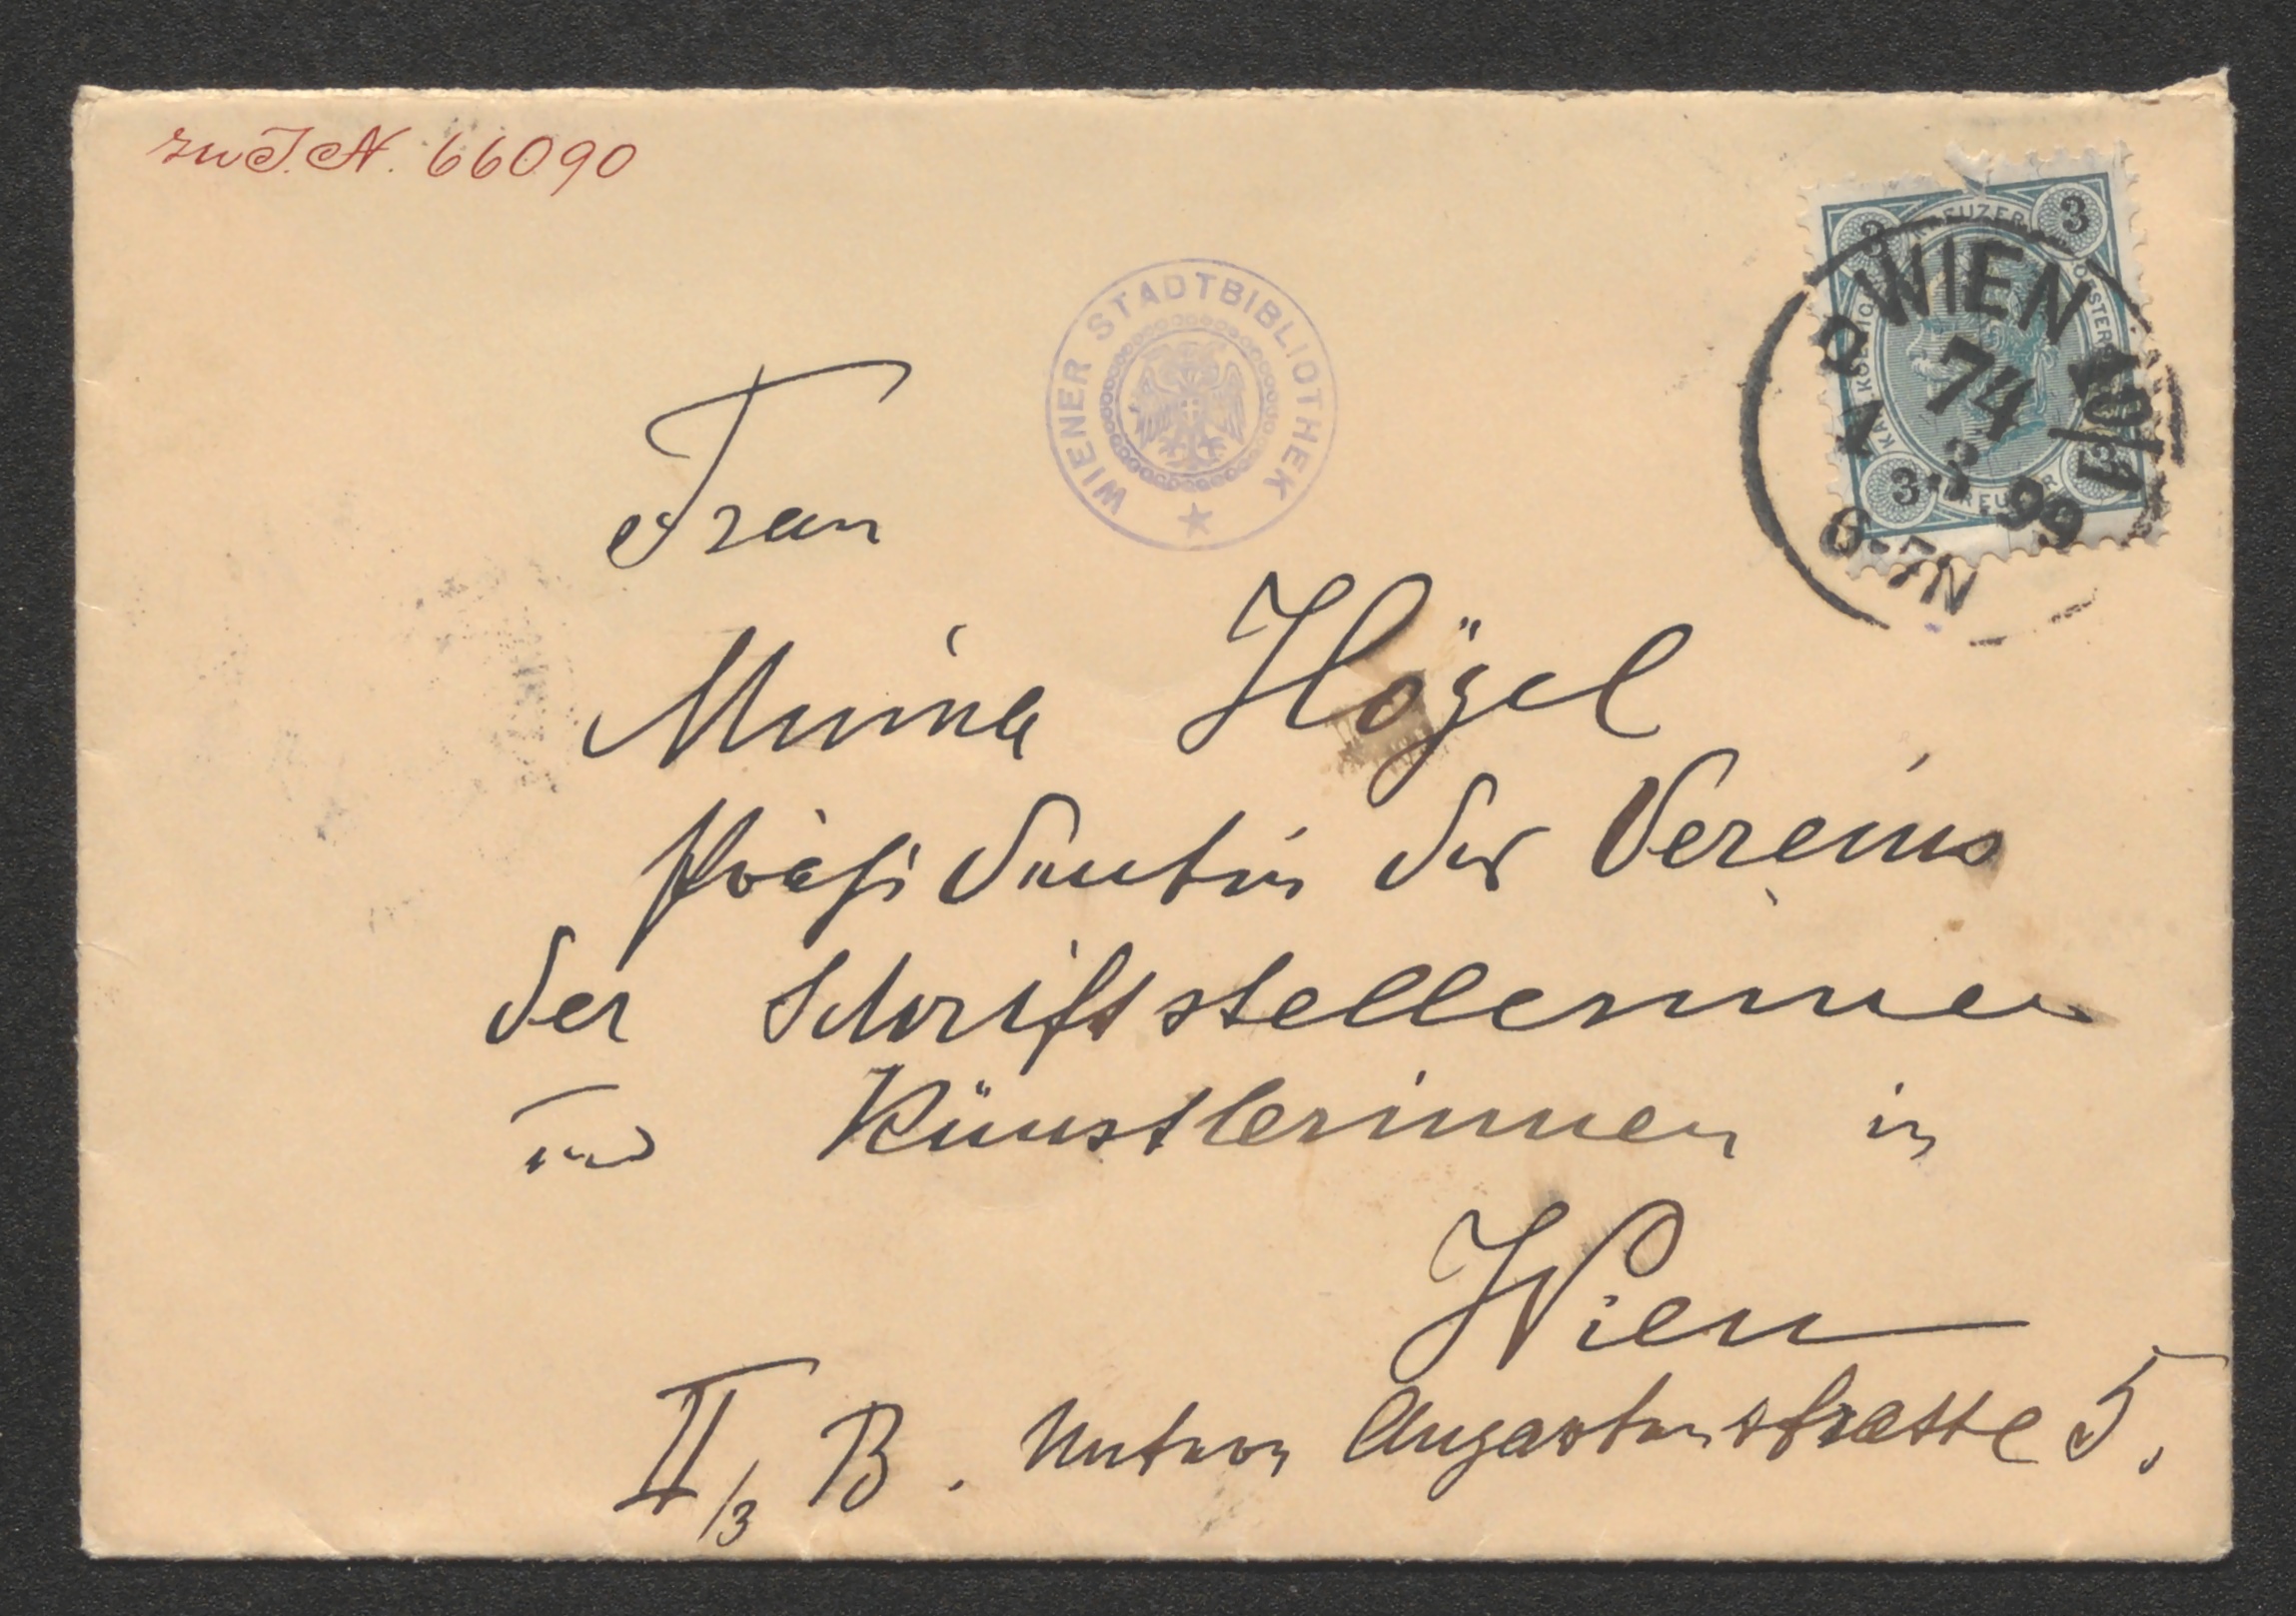 zu J.N. 66090
WIENER STADTBIBLIOTHEK
3 KREUZER 3
WIEN 10/1
74
3 99
6-7N
3 KREUZER 3
Frau
Minna Högel
Präsidentin des Vereins
der Schriftstellerinnen
und Künstlerinnen in
Wien
II/3 B. Untere Augartenstrasse 5.